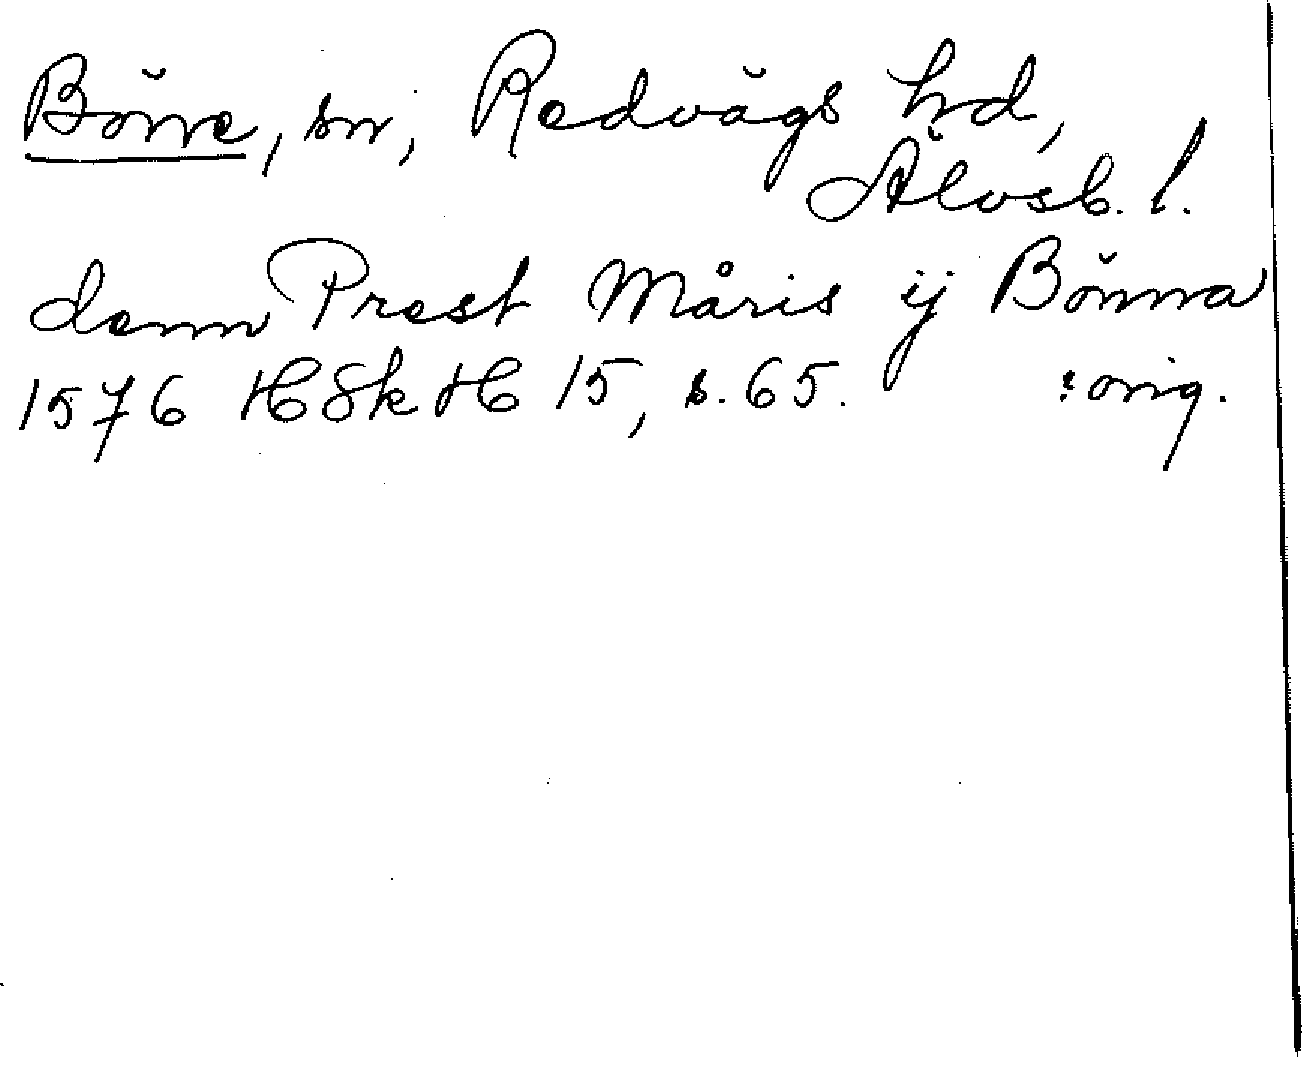 Bönne, sn, Redvägs hd,
Älvsb. l.
denn Prest Måris ij Bönna
1576 HSkH 15, s. 65. : orig.